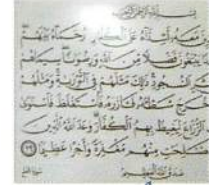 بسم الله الرحمن الرحيم
معه أشداء على الكفار رحماء بينهم
يبتغون فضلا من الله ورضوانا سيماهم
السجود ذلك مثلهم في التورىة ومثلهم
أخرج شطأه فآزره فاستغلظ فاستوى
الزراع ليغيظ بهم الكفار وعد الله الذين
منهم مغفرة وأجرا عظيما ٢٩
صدق الله العظيم